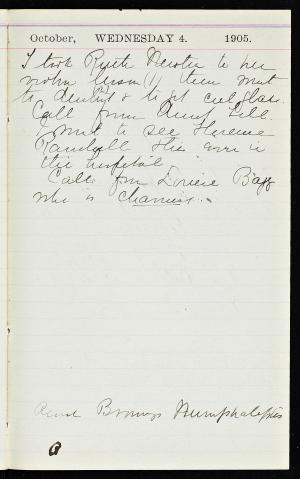 October, WEDNESDAY 4. 1905.
I took Ruth to her
violin lesson (1) then went
to dentist & to get cut glass.
Call from Aunt Lill.
Went to see Florence
Randall who over in
the hospital.
Call from Louise Bagg
who is charming.
Browning's Numpholeptos